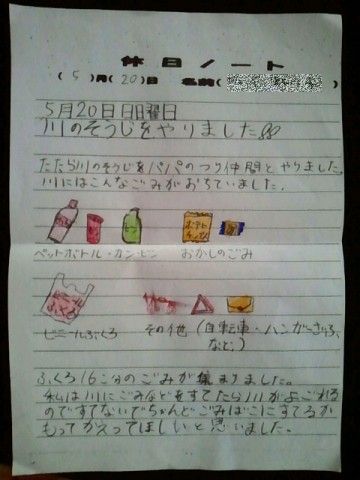 休日ノート
(5)月(20)日 名前(
5月20日日曜日
川のそうじをやりました
たたら川のそうじをパパのつり仲間とやりました。
川にはこんなごみがおちていました。
ポテト
チップス
ペットボトル・カン・ビン おかしのごみ
ビニール
ふくろ
ビニールぶくろ その他(自転車・ハンガー・さいふ、
など。)
ふくろ16こ分のごみが集まりました。
私は川にごみなどをすてたら川がよごれる
のですてないでちゃんとごみばこにすてるか
もってかえってほしいと思いました。